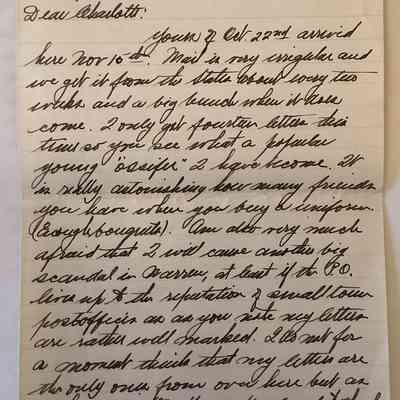 Dear Charlott:
Yours of Oct 22nd arrived
here Nov 10th. Mail is very irregular and
we get it from the States about every two
weeks and a big bunch when it does
come. I only got fourteen letters this
time so you see what a popular
young "ossifer" I have become. It
is really astonishing how many friends
you have when you buy a uniform.
(Enough bouquets). Am also very much
afraid that I will cause another big
scandal in Warren, at least if the P.O.
lives up to the reputation of small town
postoffices as as you note my letters
are rather well marked. I do not for
a moment think that my letters are
the only ones from over here but as